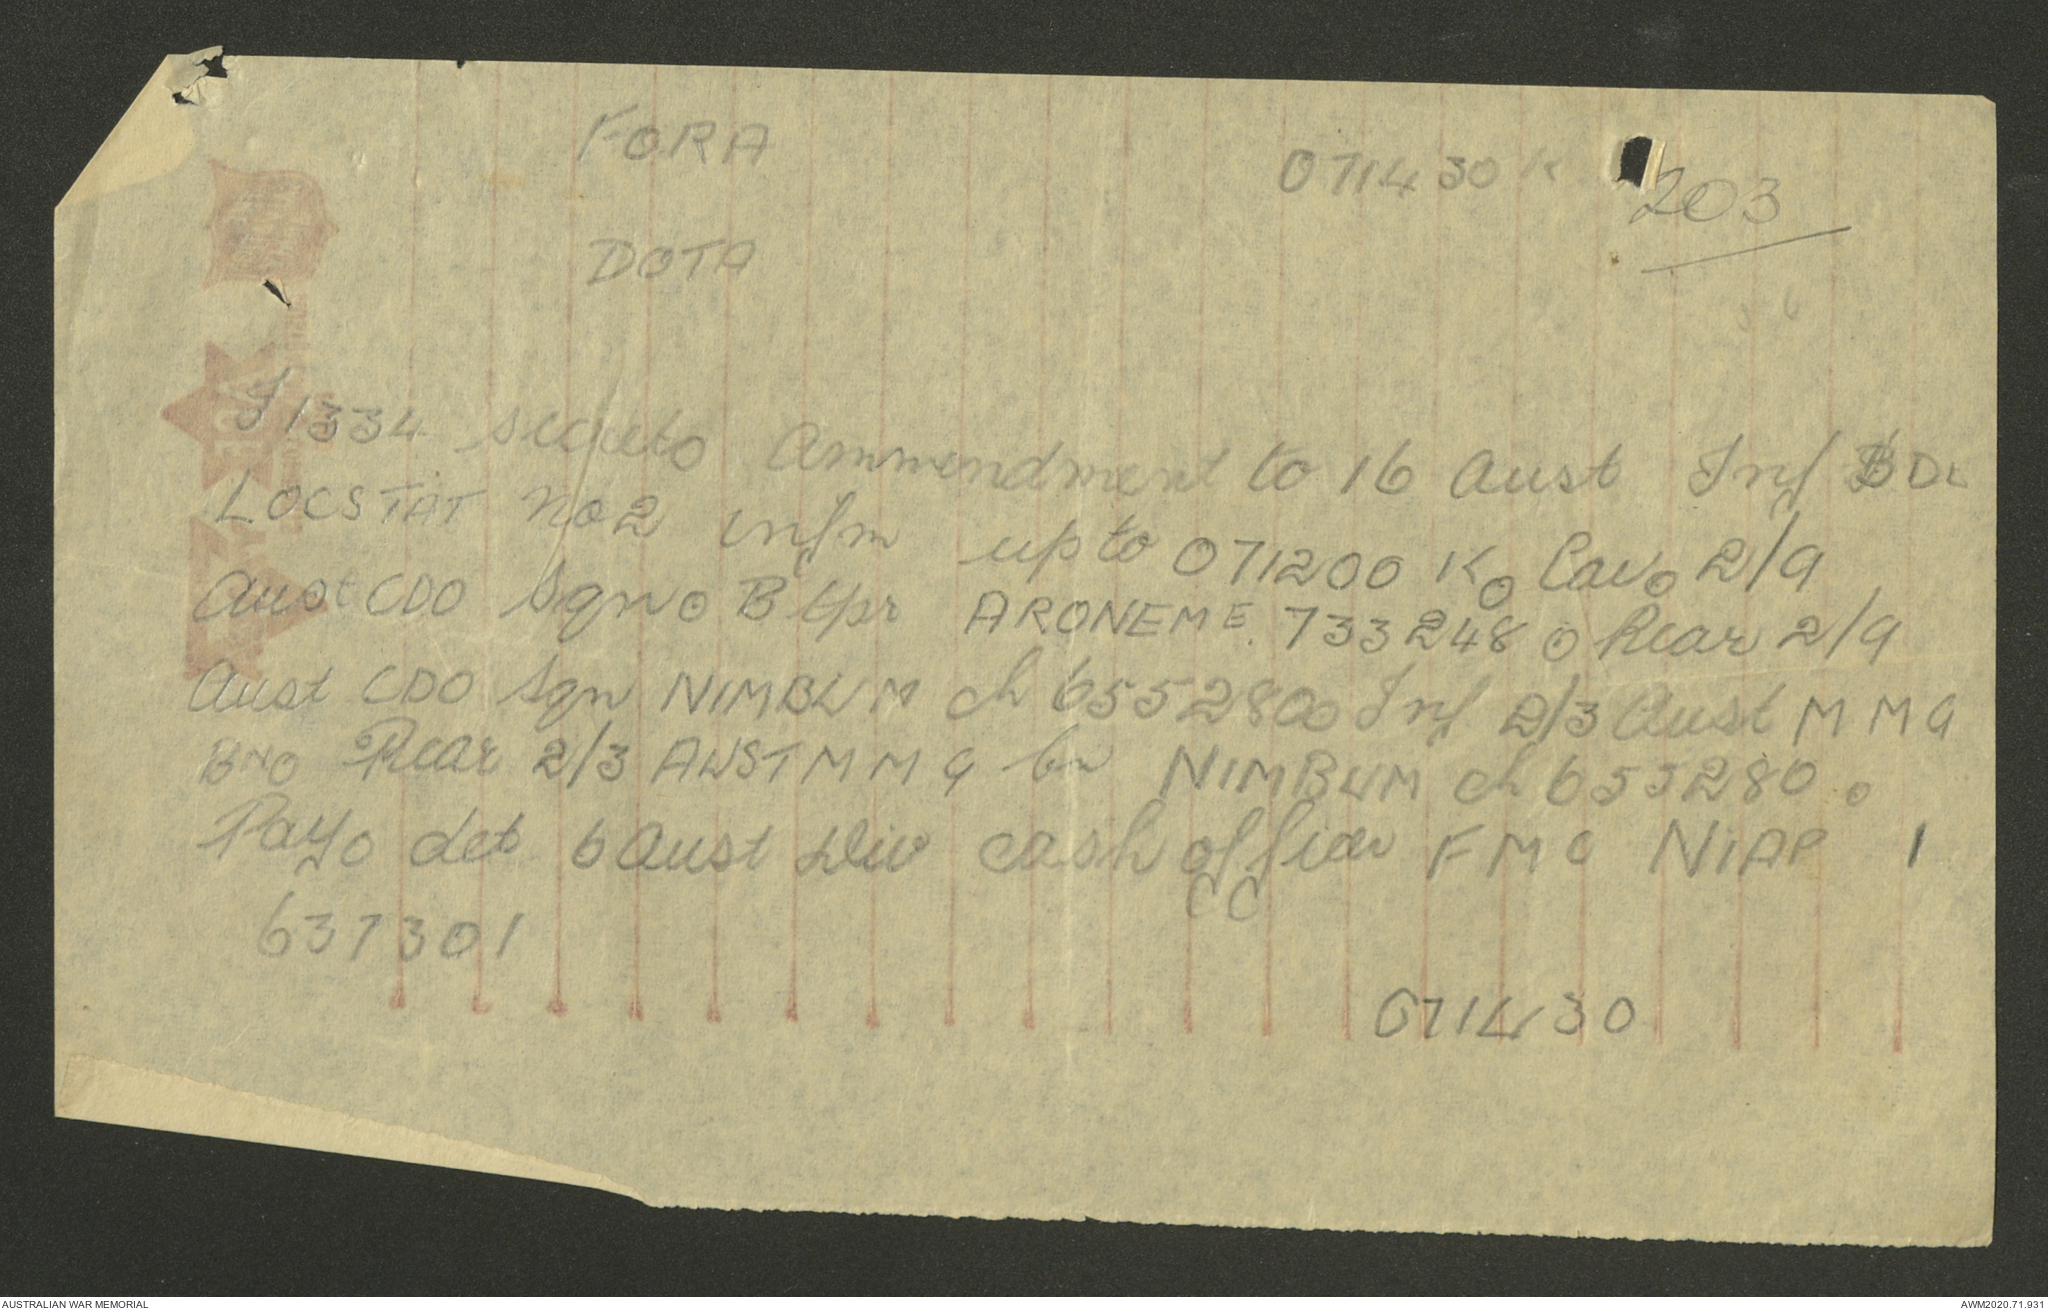 FORA
071430 K
203
DOTA
I1334 secreto Ammendment to 16 Aust Inf BDE
LOCSTAT No 2 infm up to 071200 K o Cav o 2/9
Aust CDO Sqn o B Ypr ARONEME. 733248 o Rear 2/9
Aust CDO Sqn NIMBUM ch 655280 o o Inf 2/3 Aust M M G
Bn o Rear 2/3 AUST M M G bn NIMBUM ch 655280 o
Pay o det 6 Aust Div cash office F M C NIAP 1
CC
637301
071430
AUSTRALIAN WAR MEMORIAL
AWM2020.71.931